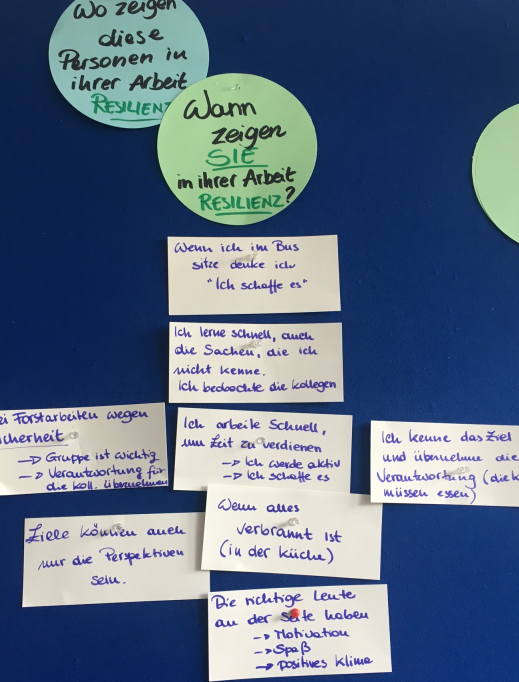 Wo zeigen
diese
Personen in
ihrer Arbeit
RESILIENZ
Wann
zeigen
SIE
in ihrer Arbeit
RESILIENZ?
Wenn ich im Bus
sitze denke ich
"Ich schaffe es"
Ich lerne schnell, auch
die Sachen, die ich
nicht kenne.
Ich beobachte die Kollegen
ei Forstarbeiten wegen
icherheit
→ Gruppe ist wichtig
→ Verantwortung für
die Koll. übernehmen
Ich arbeite Schnell,
um Zeit zu verdienen
→ Ich werde aktiv
→ Ich schaffe es
Ich kenne das Ziel
und übernehme die
Verantwortung (die K
müssen essen)
Wenn alles
verbrannt ist
(in der Küche)
Ziele können auch
nur die Perspektiven
sein.
Die richtige Leute
an der Seite haben
→ Motivation
→ Spaß
→ positives Klima